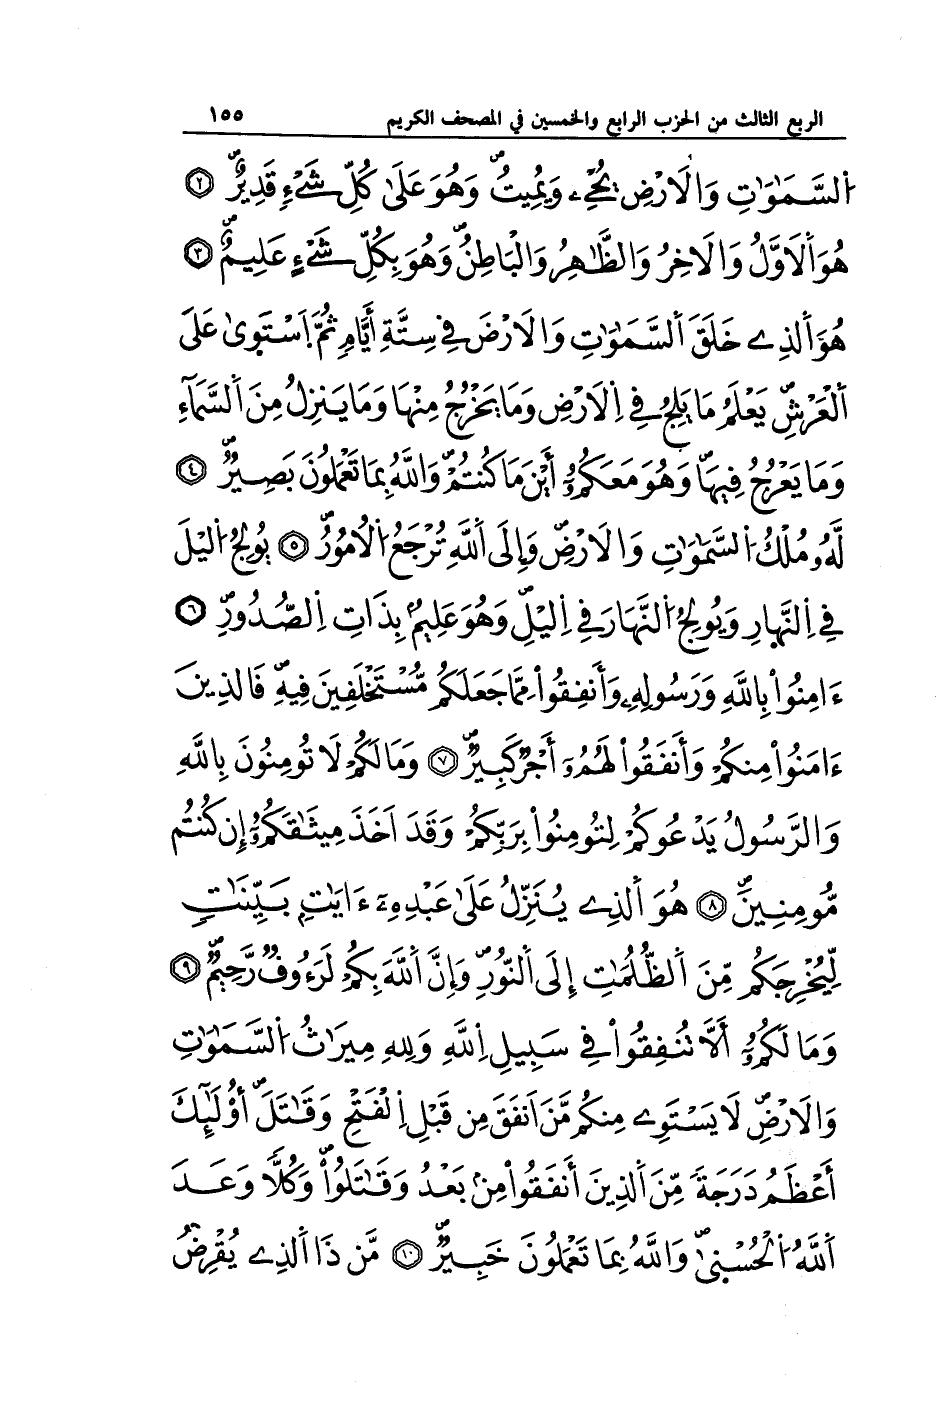 الربع الثالث من الحزب الرابع والخمسين في المصحف الكريم ١٥٥
اُ۬لسَّمَٰوَٰتِ وَالَارْضِ يُحْيِۦ وَيُمِيتُۖ وَهُوَ عَلَىٰ كُلِّ شَےْءٖ قَدِيرٌۖ ٢
هُوَ اَ۬لَاوَّلُ وَالَاخِرُ وَالظَّٰهِرُ وَالْبَاطِنُۖ وَهُوَ بِكُلِّ شَےْءٍ عَلِيمٌۖ ٣
هُوَ اَ۬لذِے خَلَقَ اَ۬لسَّمَٰوَٰتِ وَالَارْضَ فِے سِتَّةِ أَيَّامٖ ثُمَّ اَ۪سْتَوَىٰ عَلَى
اَ۬لْعَرْشِۖ يَعْلَمُ مَا يَلِجُ فِے اِ۬لَارْضِ وَمَا يَخْرُجُ مِنْهَا وَمَا يَنزِلُ مِنَ اَ۬لسَّمَآءِ
وَمَا يَعْرُجُ فِيهَاۖ وَهُوَ مَعَكُمُۥٓ أَيْنَ مَا كُنتُمْۖ وَاللَّهُ بِمَا تَعْمَلُونَ بَصِيرٌۖ ٤
لَّهُۥ مُلْكُ اُ۬لسَّمَٰوَٰتِ وَالَارْضِۖ وَإِلَى اَ۬للَّهِ تُرْجَعُ اُ۬لُامُورُۖ ٥ يُولِجُ اُ۬ليْلَ
فِے اِ۬لنَّهَارِ وَيُولِجُ اُ۬لنَّهَارَ فِے اِ۬ليْلِۖ وَهُوَ عَلِيمُۢ بِذَاتِ اِ۬لصُّدُورِۖ ٦
ءَامِنُواْ بِاللَّهِ وَرَسُولِهِۦ وَأَنفِقُواْ مِمَّا جَعَلَكُم مُّسْتَخْلَفِينَ فِيهِۖ فَالذِينَ
ءَامَنُواْ مِنكُمْ وَأَنفَقُواْ لَهُمُۥٓ أَجْرٌ كَبِيرٌۖ ٧ وَمَا لَكُمْ لَا تُومِنُونَ بِاللَّهِ
وَالرَّسُولُ يَدْعُوكُمْ لِتُومِنُواْ بِرَبِّكُمْ وَقَدَ اَخَذَ مِيثَٰقَكُمُۥٓ إِن كُنتُم
مُّومِنِينَۖ ٨ هُوَ اَ۬لذِے يُنَزِّلُ عَلَىٰ عَبْدِهِۦٓ ءَايَٰتِۢ بَيِّنَٰتٖ
لِّيُخْرِجَكُم مِّنَ اَ۬لظُّلُمَٰتِ إِلَى اَ۬لنُّورِۖ وَإِنَّ اَ۬للَّهَ بِكُمْ لَرَءُوفٞ رَّحِيمٌۖ ٩
وَمَا لَكُمُۥٓ أَلَّا تُنفِقُواْ فِے سَبِيلِ اِ۬للَّهِ وَلِلهِ مِيرَٰثُ اُ۬لسَّمَٰوَٰتِ
وَالَارْضِۖ لَا يَسْتَوِے مِنكُم مَّنَ اَنفَقَ مِن قَبْلِ اِ۬لْفَتْحِ وَقَٰتَلَۖ أُوْلَٰٓئِكَ
أَعْظَمُ دَرَجَةٗ مِّنَ اَ۬لذِينَ أَنفَقُواْ مِنۢ بَعْدُ وَقَٰتَلُواْۖ وَكُلّاٗ وَعَدَ
اَ۬للَّهُ اُ۬لْحُسْنَىٰۖ وَاللَّهُ بِمَا تَعْمَلُونَ خَبِيرٌۖ ١٠ مَّن ذَا اَ۬لذِے يُقْرِضُ